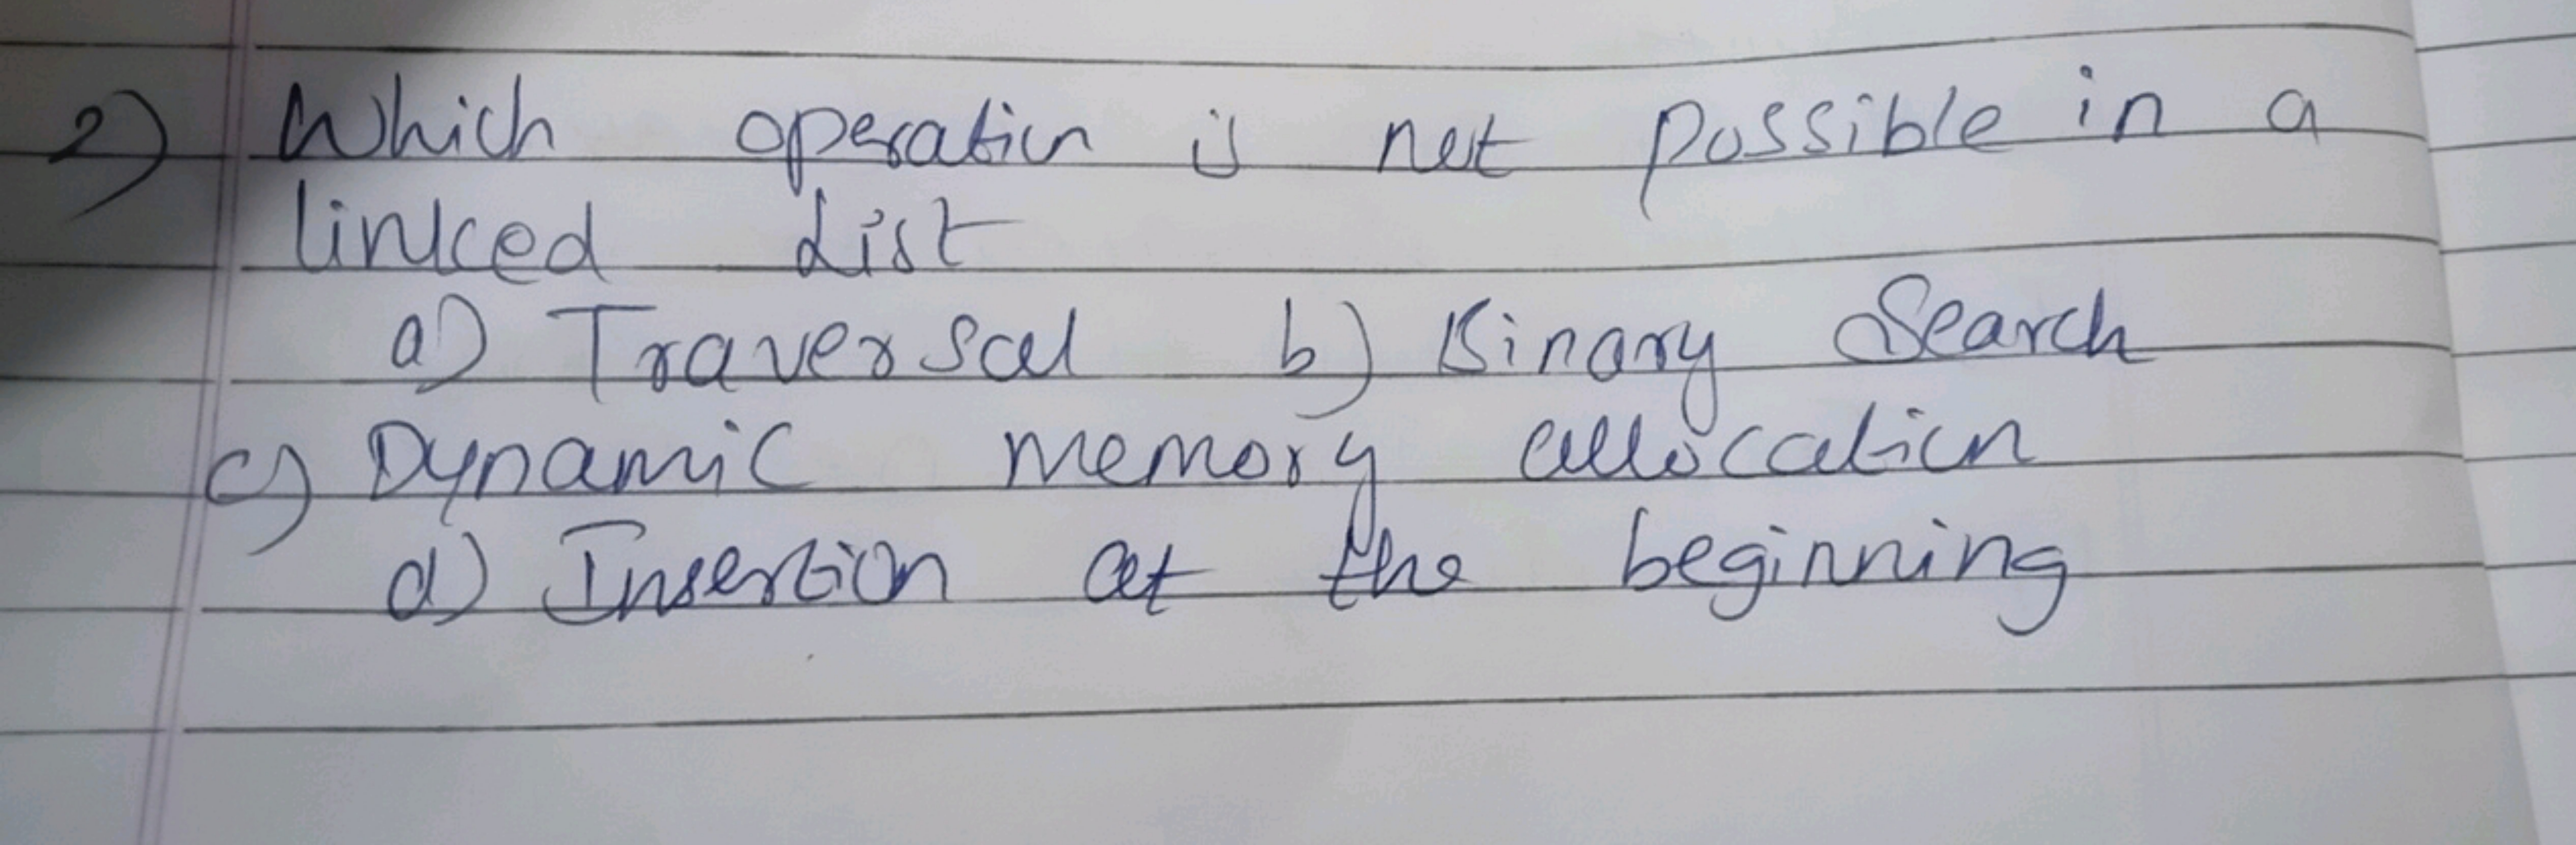 2) Which operation is not possible in a
linked List
a) Traversal b) Binary Search
c) Dynamic memory allocation
d) Insertion at the beginning